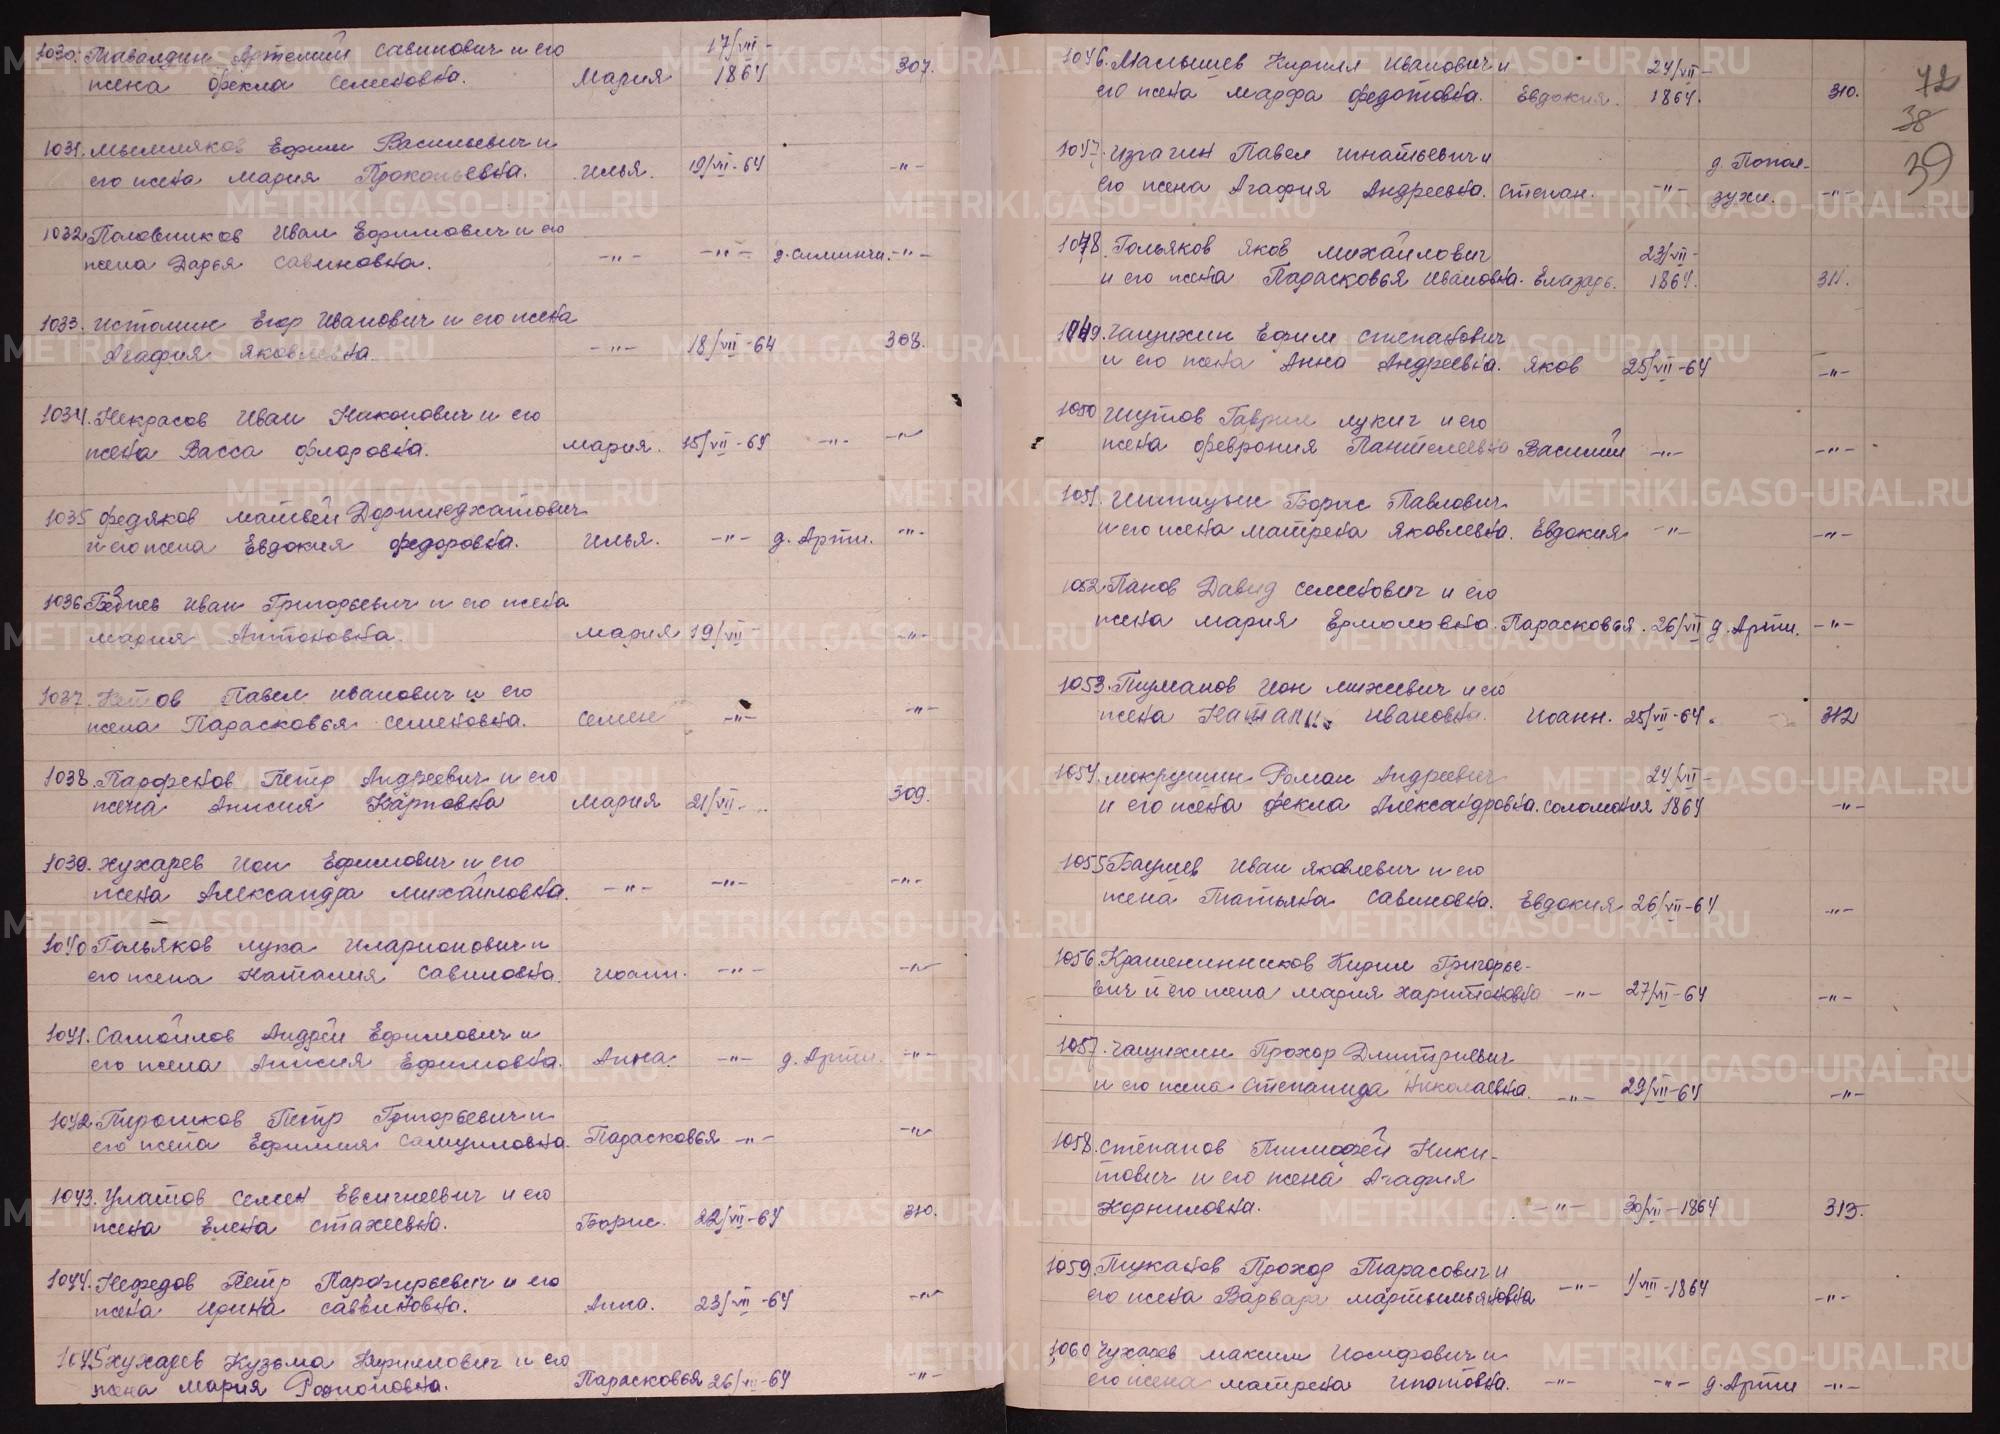 1030. Тавалдин Артемий Савинович и его 17/VII-
жена Фекла Семеновна. Мария 1864 307.
1031. Мымляков Ефим Васильевич и
его жена Мария Прокопьевна. Илья. 19/VII-64 -"-
1032. Половников Иван Ефимович и его
жена Дарья Савиновна. -"- -"- д. Симинчи. -"-
1033. Истомин Егор Иванович и его жена
Агафия Яковлевна -"- 18/VII-64 308.
1034. Некрасов Иван Никонович и его
жена Васса Флоровна. Мария. 15/VII-64 -"- -"-
1035 Федяков Матвей Дормиедхатович
и его жена Евдокия Федоровна. Илья. -"- д. Арти. -"-
1036. Иван Григорьевич и его жена
Мария Антоновна. Мария 19/VII- -"-
1037. Павел Иванович и его
жена Парасковья Семеновна. Семен -"- -"-
1038. Парфенов Петр Андреевич и его
жена Анисия Карповна Мария 21/VII- 309.
1039. Хухарев Ион Ефимович и его
жена Александра Михайловна. -"- -"- -"-
1040 Гольяков Лука Иларионович и
его жена Наталия Савиновна. Иоанн. -"- -"-
1041. Самойлов Андрей Ефимович и
его жена Анисия Ефимовна. Анна. -"- д. Арти. -"-
1042. Пирошков Петр Григорьевич и
его жена Ефимия Самуиловна. Парасковья -"- -"-
1043. Улатов Семен Евсигнеевич и его
жена Елена Стахеевна. Борис. 22/VII-64 310.
1044. Нефедов Петр Парфирьевич и его
жена Ирина Саввиновна. Анна. 23/VII-64 -"-
1045 Хухарев Кузьма Кирилович и его
жена Мария Родионовна. Парасковья 26/VII-64 -"-
1046. Малышев Кирилл Иванович и 24/VII-
его жена Марфа Федотовна. Евдокия. 1864. 310.
72
38
39
1047. Изгагин Павел Игнатьевич и д. Попол-
его жена Агафия Андреевна. Степан. -"- зухи. -"-
1048. Гольяков Яков Михайлович 23/VII-
и его жена Парасковья Ивановна. Елазарь. 1864. 311.
1049. Чащихин Ефим Степанович
и его жена Анна Андреевна. Яков 25/VII-64 -"-
1050 Шутов Гаврил Лукич и его
жена Феврония Пантелеевна Василий -"- -"-
1051. Шипицын Борис Павлович
и его жена Матрена Яковлевна. Евдокия -"- -"-
1052. Панов Давид Семенович и его
жена Мария Ермоловна. Парасковья. 26/VII д. Арти. -"-
1053. Туманов Ион Михеевич и его
жена Ивановна. Иоанн. 25/VII-64. 312
1054. Мокрушин Роман Андреевич 24/VII-
и его жена Фекла Александровна. Соломония 1864 -"-
1055 Бацуев Иван Яковлевич и его
жена Татьяна Савиновна. Евдокия 26/VII-64 -"-
1056. Крашенинников Кирил Григорье-
вич и его жена Мария Харитоновна -"- 27/VII-64 -"-
1057. Чащихин Прохор Дмитриевич
и его жена Степанида Николаевна. -"- 29/VII-64 -"-
1058. Степанов Тимофей Ники-
тович и его жена Агафия
Корниловна. -"- 30/VII-1864 313.
1059. Тukанов Прохор Тарасович и
его жена Варвара Мартымьяновна -"- 1/VIII-1864 -"-
1060 Чухарев Максим Иосифович и
его жена Матрена Ипатовна. -"- -"- д. Арти -"-